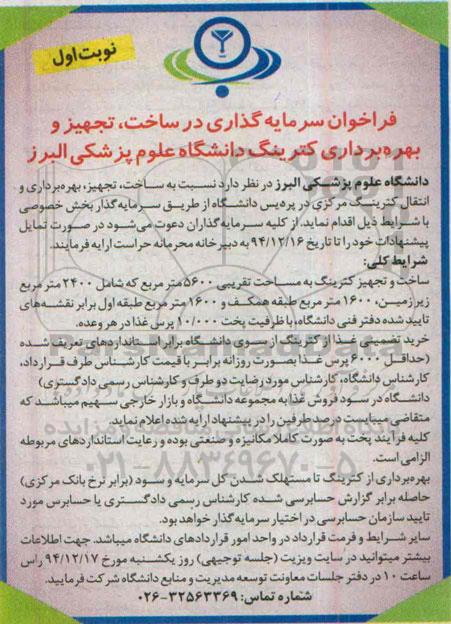 نوبت اول
فراخوان سرمایه گذاری در ساخت، تجهیز و
بهره‌برداری کترینگ دانشگاه علوم پزشکی البرز
دانشگاه علوم پزشکی البرز در نظر دارد نسبت به ساخت، تجهیز، بهره‌برداری و
انتقال کترینگ مرکزی در پردیس دانشگاه از طریق سرمایه‌گذار بخش خصوصی
با شرایط ذیل اقدام نماید. از کلیه سرمایه‌گذاران دعوت می‌شود در صورت تمایل
پیشنهادات خود را تا تاریخ ۹۴/۱۲/۱۶ به دبیرخانه محرمانه حراست ارایه فرمایند.
شرایط کلی:
ساخت و تجهیز کترینگ به مساحت تقریبی ۵۶۰۰ متر مربع که شامل ۲۴۰۰ متر مربع
زیرزمین، ۱۶۰۰ متر مربع طبقه همکف و ۱۶۰۰ متر مربع طبقه اول برابر نقشه‌های
تایید شده دفتر فنی دانشگاه، با ظرفیت پخت ۱۰/۰۰۰ پرس غذا در هر وعده.
خرید تضمینی غذا از کترینگ از سوی دانشگاه برابر استانداردهای تعریف شده
(حداقل ۶۰۰۰ پرس غذا بصورت روزانه برابر با قیمت کارشناس طرف قرارداد،
کارشناس دانشگاه، کارشناس مورد رضایت دو طرف و کارشناس رسمی دادگستری)
دانشگاه در سود فروش غذا به مجموعه دانشگاه و بازار خارجی سهیم میباشد که
متقاضی میبایست درصد طرفین را در پیشنهاد ارایه شده اعلام نماید.
کلیه فرآیند پخت به صورت کاملا مکانیزه و صنعتی بوده و رعایت استانداردهای مربوطه
الزامی است.
بهره‌برداری از کترینگ تا مستهلک شدن کل سرمایه و سود (برابر نرخ بانک مرکزی)
حاصله برابر گزارش حسابرسی شده کارشناس رسمی دادگستری یا حسابرس مورد
تایید سازمان حسابرسی در اختیار سرمایه گذار خواهد بود.
سایر شرایط و فرمت قرارداد در واحد امور قراردادهای دانشگاه میباشد. جهت اطلاعات
بیشتر میتوانید در سایت ویزیت (جلسه توجیهی) روز یکشنبه مورخ ۹۴/۱۲/۱۷ راس
ساعت ۱۰ در دفتر جلسات معاونت توسعه مدیریت و منابع دانشگاه شرکت فرمایید.
شماره تماس: ۳۲۵۶۳۳۶۹-۰۲۶
ParsNamadData
۰۲۱-۸۸۳۴۹۶۷۰-۵